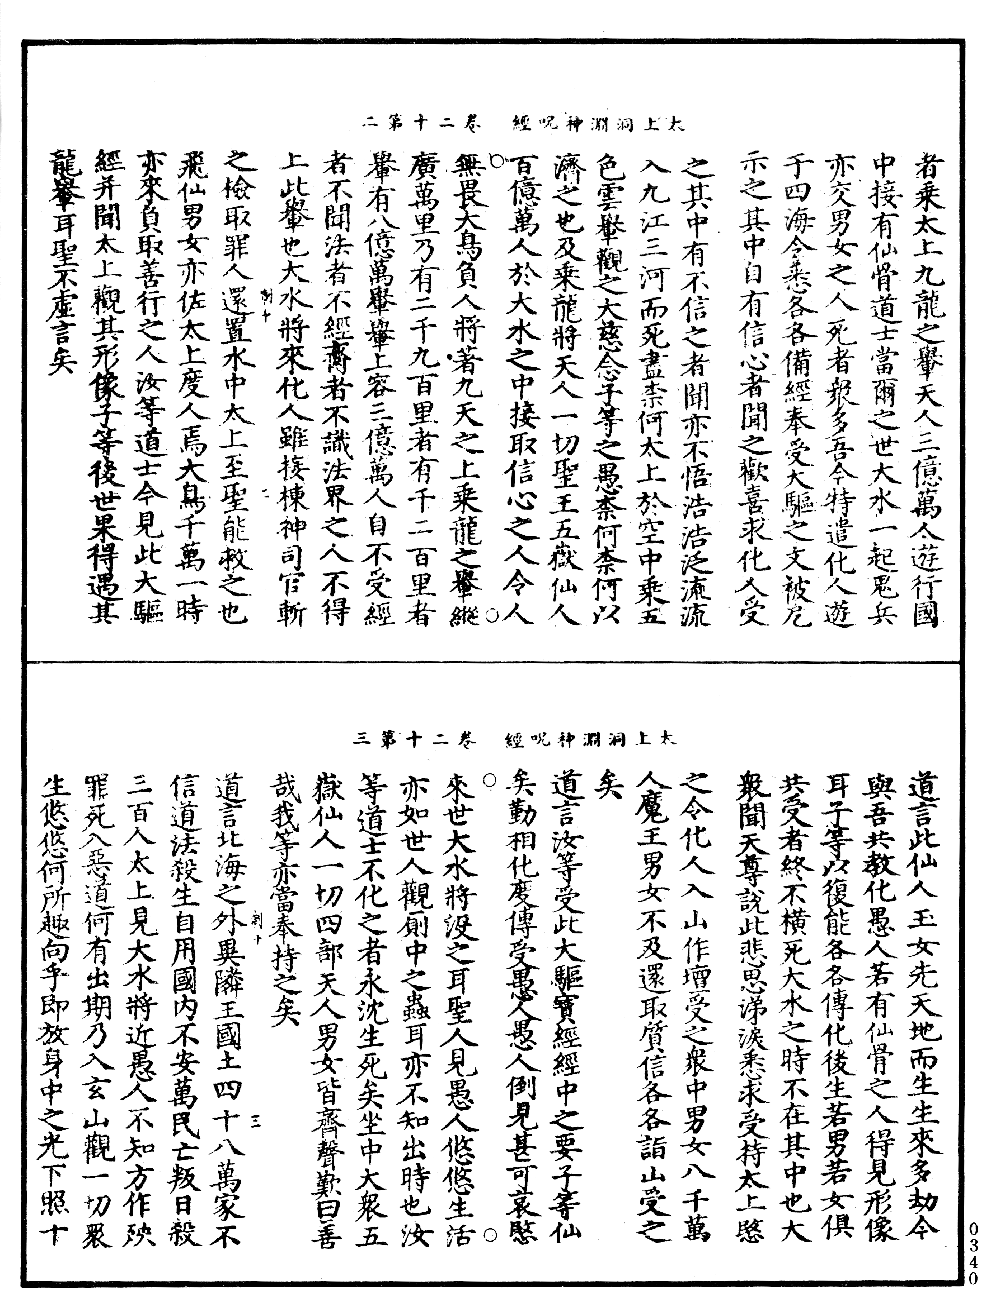 太上洞淵神呪經　卷二十第二
者乘太上九龍之轝天人三億萬人遊行國
中接有仙骨道士當爾之世大水一起惡兵
亦交男女之人死者衆多吾今特遣化人遊
于四海令悉各各備經奉受大驅之文被凡
示之其中自有信心者聞之歡喜求化人受
之其中有不信之者聞亦不悟浩浩泛流流
入九江三河而死盡柰何太上於空中乘五
色雲轝觀之大慈念子等之愚柰何柰何以
濟之也及乘龍將天人一切聖王五嶽仙人
百億萬人於大水之中接取信心之人令人
無畏大鳥負人將著九天之上乘龍之轝縱
廣萬里乃有二千九百里者有千二百里者
轝有八億萬轝轝上容三億萬人自不受經
者不聞法者不經齋者不識法界之人不得
上此轝也大水將來化人雖接棟神司官斬
之檢取罪人還置水中太上至聖能救之也
飛仙男女亦佐太上度人焉大鳥千萬一時
亦來負取善行之人汝等道士今見此大驅
經并聞太上觀其形像子等後世果得遇其
龍轝耳聖不虛言矣
太上洞淵神呪經　卷二十第三
道言此仙人玉女先天地而生生來多劫今
與吾共教化愚人若有仙骨之人得見形像
耳子等以復能各各傳化後生若男若女俱
共受者終不橫死大水之時不在其中也大
衆聞天尊說此悲思涕淚悉求受持太上愍
之令化人入山作壇受之衆中男女八千萬
人魔王男女不及還取質信各各詣山受之
矣
道言汝等受此大驅寶經經中之要子等仙
矣勤相化度傳受愚人愚人倒見甚可哀愍
來世大水將沒之耳聖人見愚人悠悠生活
亦如世人觀厠中之蟲耳亦不知出時也汝
等道士不化之者永沈生死矣坐中大衆五
嶽仙人一切四部天人男女皆齊聲歎曰善
哉我等亦當奉持之矣
道言北海之外異隣王國土四十八萬家不
信道法殺生自用國內不安萬民亡叛日殺
三百人太上見大水將近愚人不知方作殃
罪死入惡道何有出期乃入玄山觀一切衆
生悠悠何所趣向乎即放身中之光下照十
0340